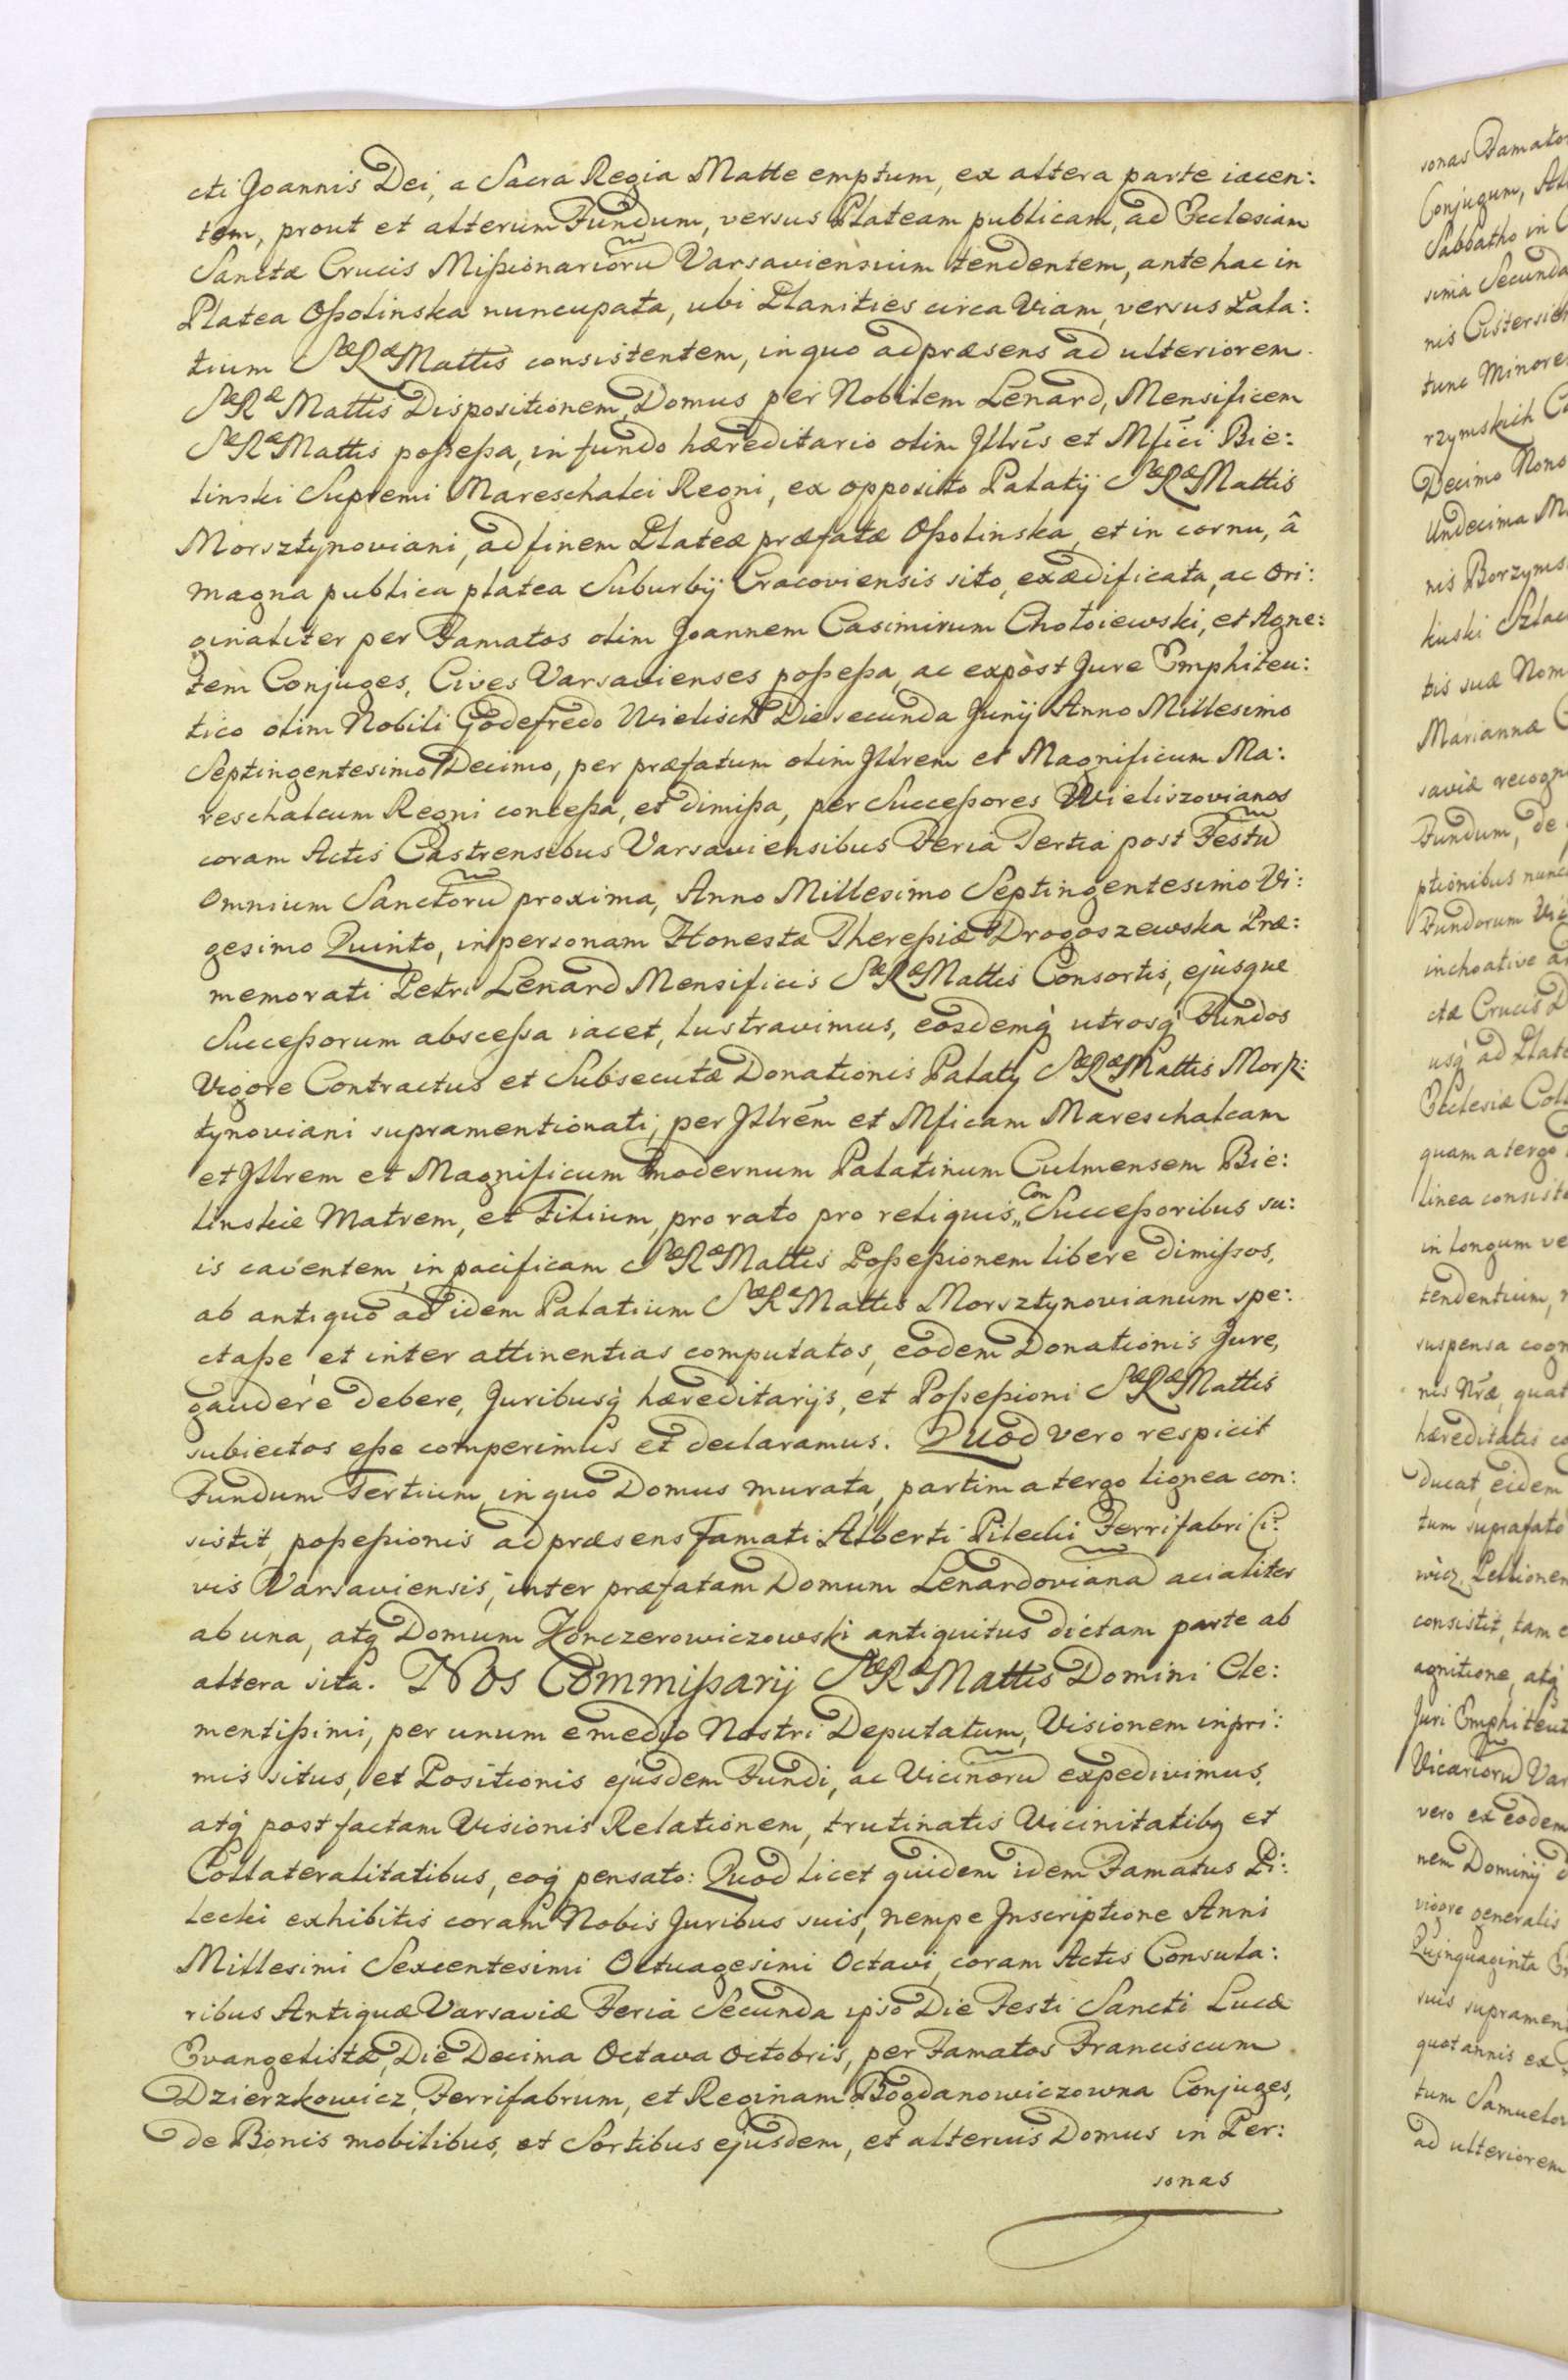 cti Joannis Dei, a Sacra Regia Matte emptum, ex altera parte iacen:
tem, prout et alterum Fundum, versus Plateam publicam, ad Ecclesiam
Sanctæ Crucis Mißionarioru Varsaviensium tendentem, ante hac in
Platea Oßolinska nuncupata, ubi Planities circa Viam, versus Pala:
tium SæRæ Mattis consistentem, in quo ad præsens ad ulteriorem
SæRæ Mattis Dispositionem, Domus per Nobilem Lenard, Mensificem
SæRæ Mattis poßeßa, in fundo hæreditario olim Jllris et Mfici Bie:
linski Supremi Mareschalci Regni, ex opposito Palatij SæRæ Mattis
Morsztynoviani, ad finem Plateæ præfatæ Oßolinska, et in cornu, â
magna publica platea Suburbij Cracoviensis sito, exædificata, ac Ori:
ginaliter per Famatos olim Joannem Casimirum Chotoiewski, et Agne:
tem Conjuges, Cives Varsavienses poßeßa, ac expost Jure Emphiteu:
tico olim Nobili Godefredo Wielisch Die secunda Junij Anno Millesimo
Septingentesimo Decimo, per præfatum olim Jllrem et Magnificum Ma:
reschalcum Regni conceßa, et dimißa, per Succeßores Wieliszovianos
coram Actis Castrensibus Varsaviensibus Feria Tertia post Festu
Omnium Sanctoru proxima, Anno Millesimo Septingentesimo Vi:
gesimo Quinto, in personam Honestæ Thereßiæ Drogoszewska Præ:
memorati Petri Lenard Mensificis SæRæ Mattis Consortis, ejusque
Succeßorum absceßa iacet, lustravimus, eosdemq utrosq Fundos
Vigore Contractus et Subsecutæ Donationis Palaty SæRæ Mattis Morß:
tynoviani supramentionati, per Jllrem et Mficam Mareschalcam
et Jllrem et Magnificum modernum Palatinum Culmensem Bie:
linskie Matrem, et Filium, pro rato pro reliquis „Con Succeßoribus su:
is caventem, in pacificam SæRæ Mattis Poßeßionem libere dimißos,
ab antiquo ad idem Palatium SæRæ Mattis Morsztynovianum spe:
ctaße et inter attinentias computatos, eodem Donationis Jure,
gaudere debere, Juribusq hæreditarijs, et Poßeßioni SæRæ Mattis
subiectos eße comperimus et declaramus. Quod vero respicit
Fundum Tertium, in quo Domus murata, partim a tergo lignea con:
sistit, poßeßionis ad præsens Famati Alberti Pilecki Ferrifabri Ci:
vis Varsaviensis, inter præfatam Domum Lenardoviana acialiter
ab una, atq Domum Konczerowiczowski antiquitus dictam parte ab
altera sita. Nos Commißarij SæRæ Mattis Domini Cle:
mentißimi, per unum e medio Nostri Deputatum, Visionem inpri:
mis situs, et Positionis ejusdem Fundi, ac Vicinoru expedivimus,
atq post factam Visionis Relationem, trutinatis Vicinitatibq et
Collateralitatibus, eoq pensato: Quod licet quidem idem Famatus Pi:
lecki exhibitis coram Nobis Juribus suis, nempe Jnscriptione Anni
Millesimi Sexcentesimi Octuagesimi Octavi, coram Actis Consula:
ribus Antiquæ Varsaviæ Feria Secunda ipso Die Festi Sancti Lucæ
Evangelistæ, Die Decima Octava Octobris, per Famatos Franciscum
Dzierzkowicz, Ferrifabrum, et Reginam Bogdanowiczowna Conjuges,
de Bonis mobilibus, et Sortibus ejusdem, et alterius Domus in Per:
sonas
sonas Famato
Conjugum,
Sabbatho in
simâ Secunda
nis Cistersie
tunc Minore
rzymskich
Decimo Nono
Undecima
nis Borzyms
kiuski
tis suæ Nom
Mariannæ
saviæ recogn
Fundum, de
ptionibus nunc
Fundorum
inchoative
ctæ Crucis
usq ad Plate
Ecclesiæ
quam a tergo
linea consist
in longum ve
tendentium,
suspensa cogn
nis Nræ, quat
hæreditatis
ducat, eidem
tum suprafato
consistit, tam
agnitione, atq
Juri Emphiteut
Vicarioru Var
vero ex eodem
nem Dominij
vigore generalis
Quinquaginta
suis supramen
quotannis ex
tum Samuelo
ad ulteriorem